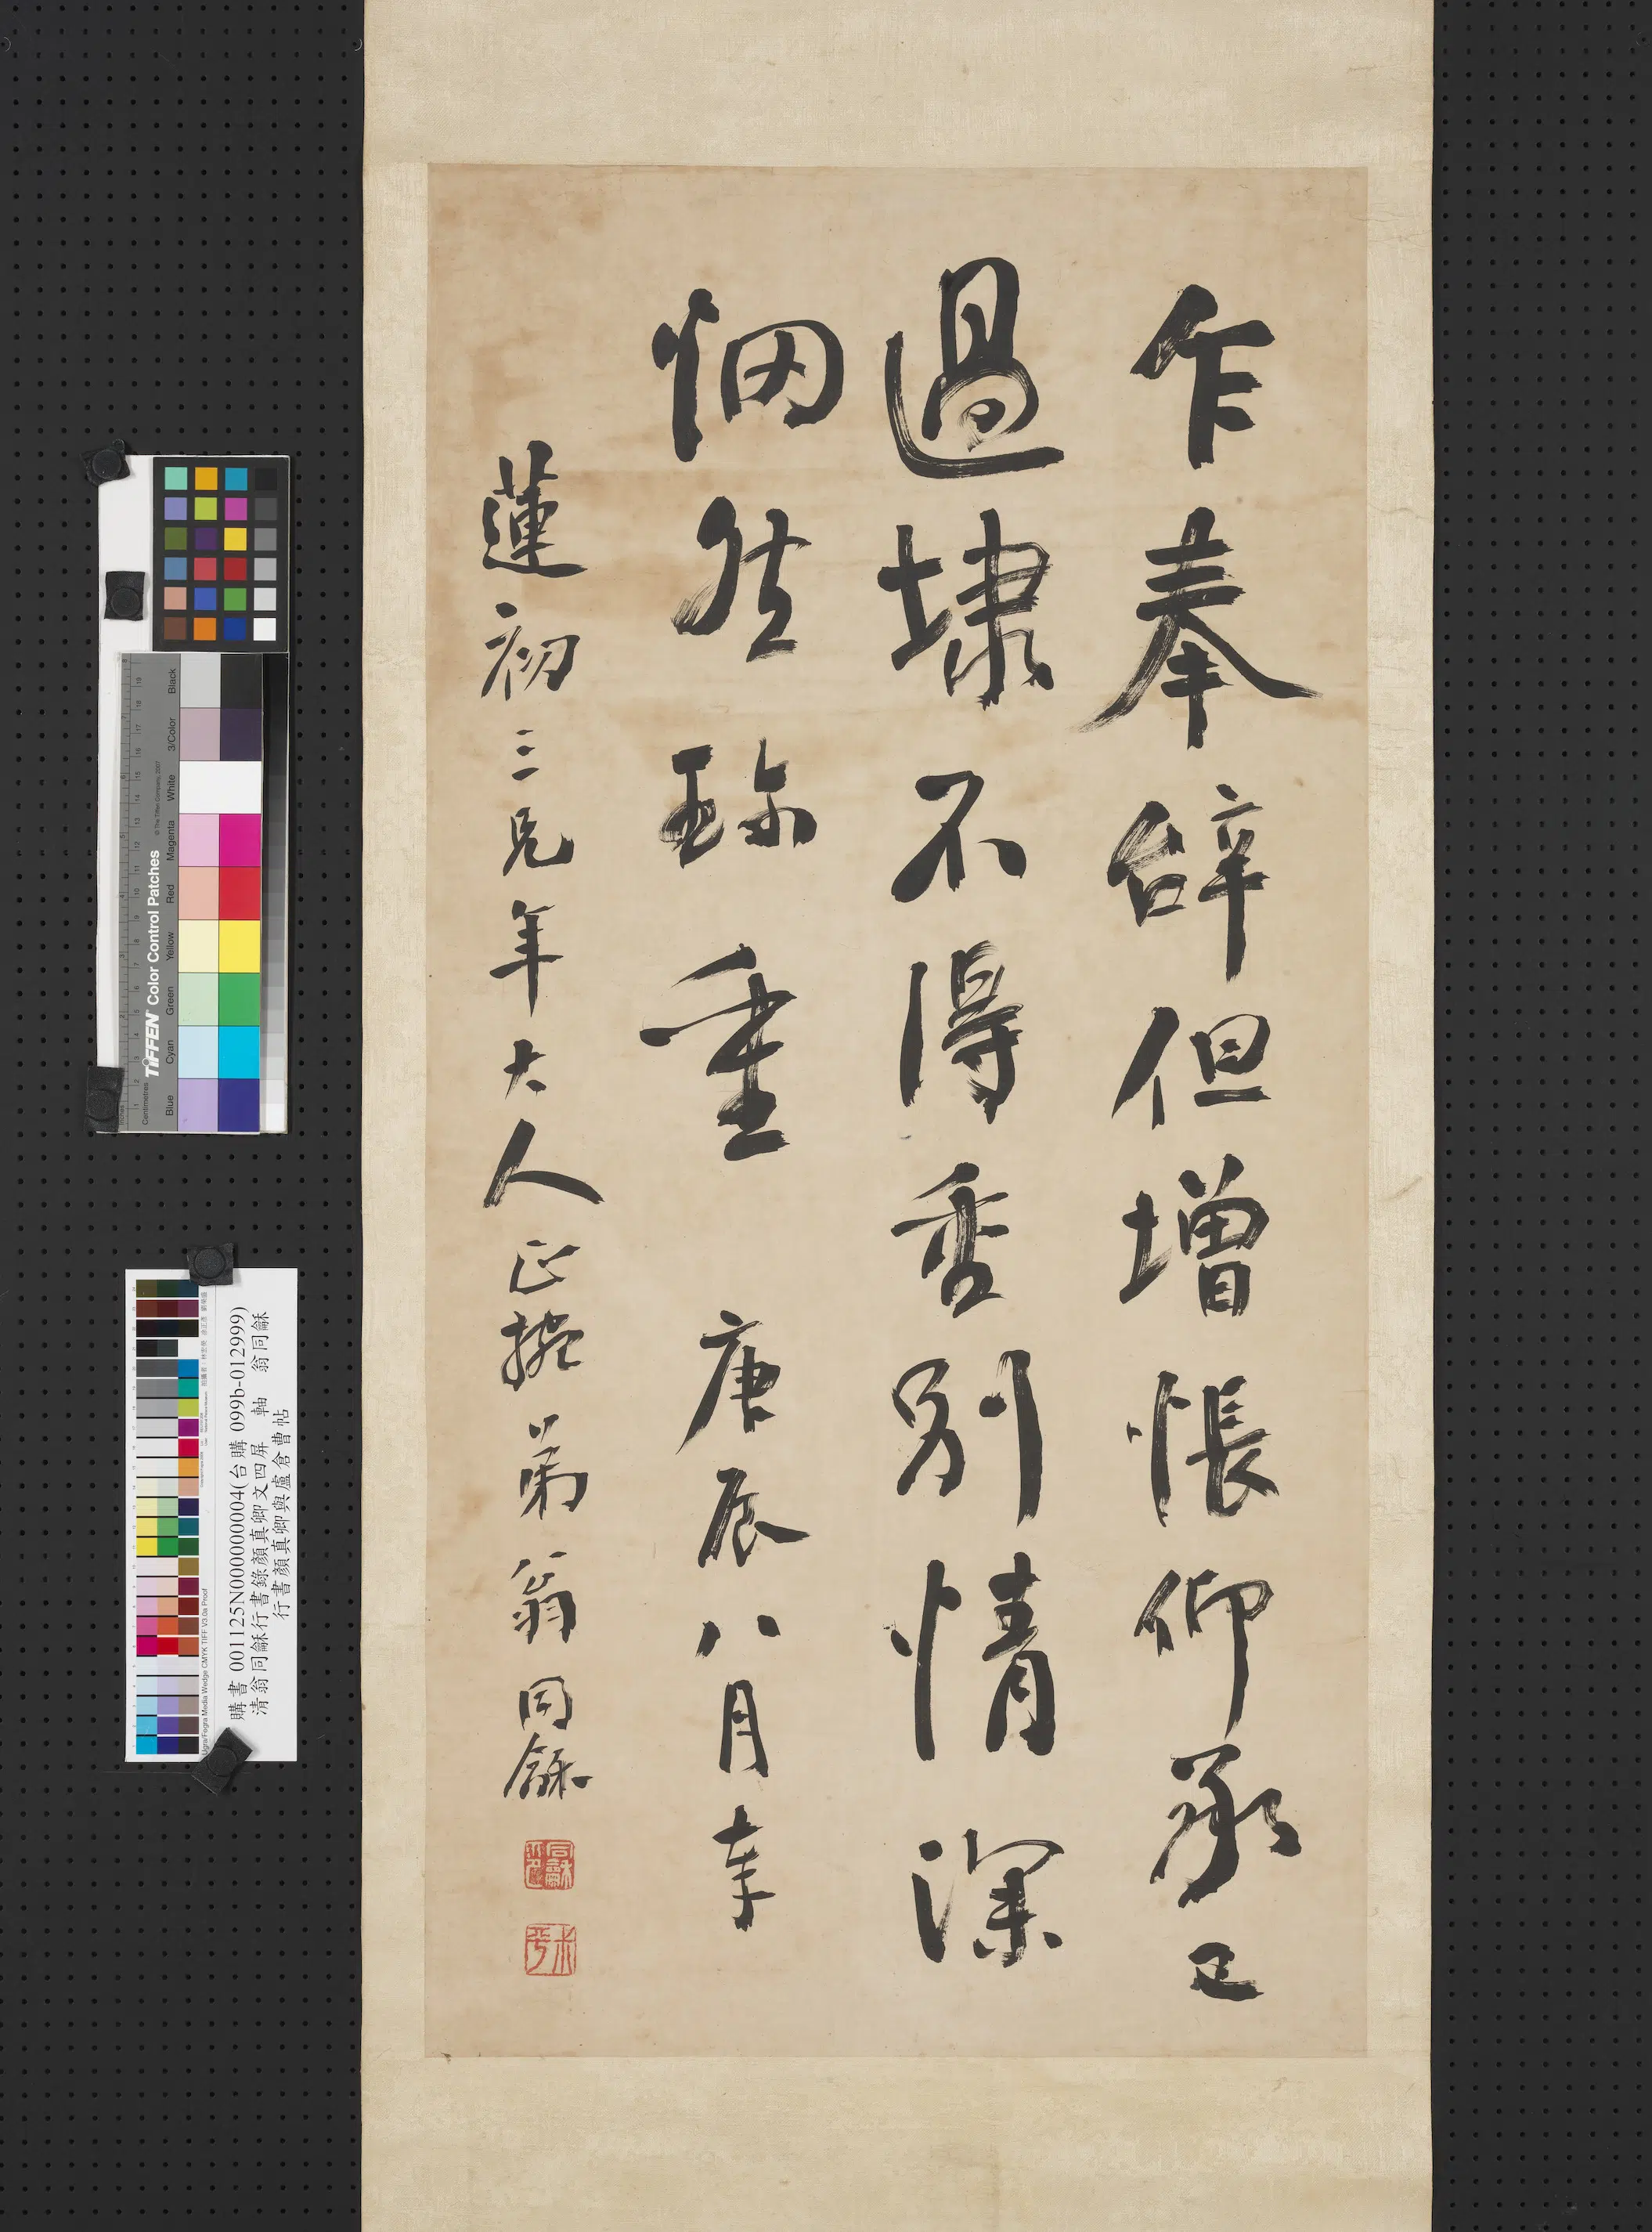 乍奉辭但增悵仰承已
過埭不得別情深
惘然珍重 庚辰八月奉
蓮初三兄年大人正 弟翁同龢
同龢印
叔平
購書 001125N000000004(台購 099b-012999)
清翁同龢行書錄顏真卿文四屏 軸 翁同龢
行書顏真卿與盧倉曹帖
TIFFEN Color Control Patches
© The Tiffen Company, 2007
Centimetres
Blue Cyan Green Yellow Red Magenta White 3/Color Black
Ugra/Fogra Media Wedge CMYK TIFF V3.0a Proof